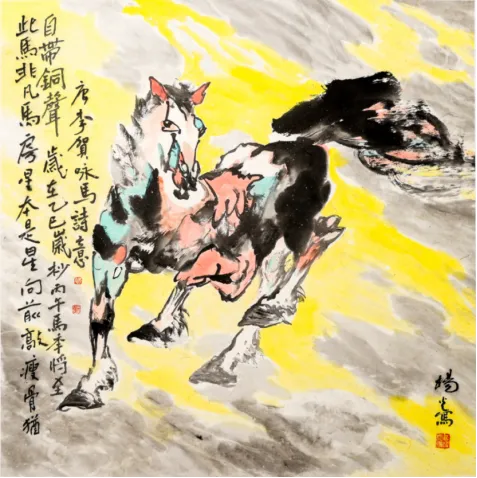 此馬非凡馬房星本是星向前敲瘦骨猶
自帶銅聲 歲在乙巳歲杪丙午馬年將至
唐李賀咏馬詩意
楊光寫